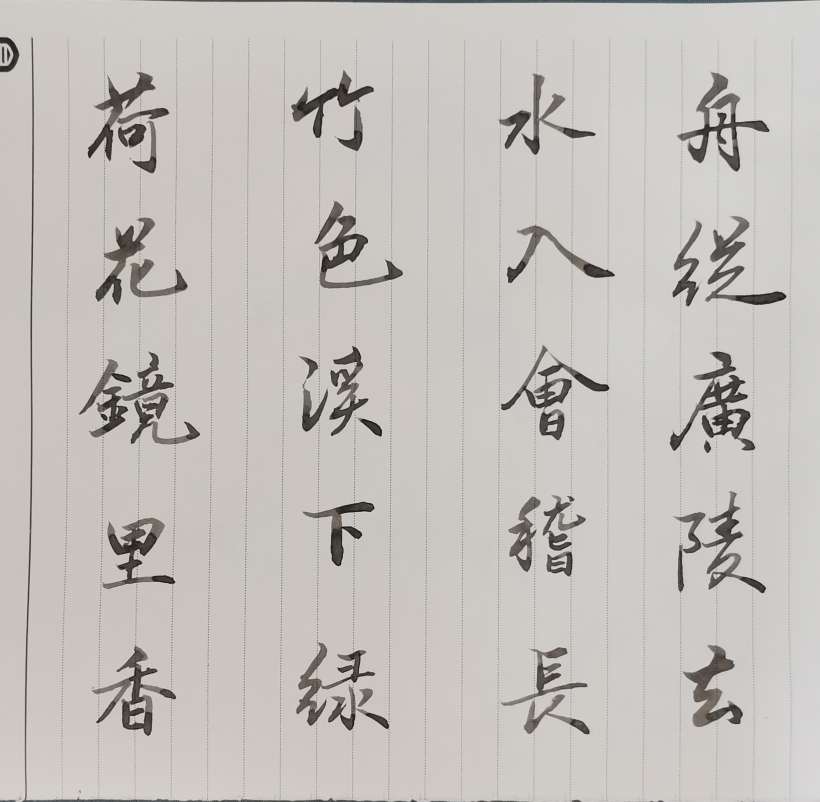 舟從廣陵去
水入會稽長
竹色溪下緑
荷花鏡里香